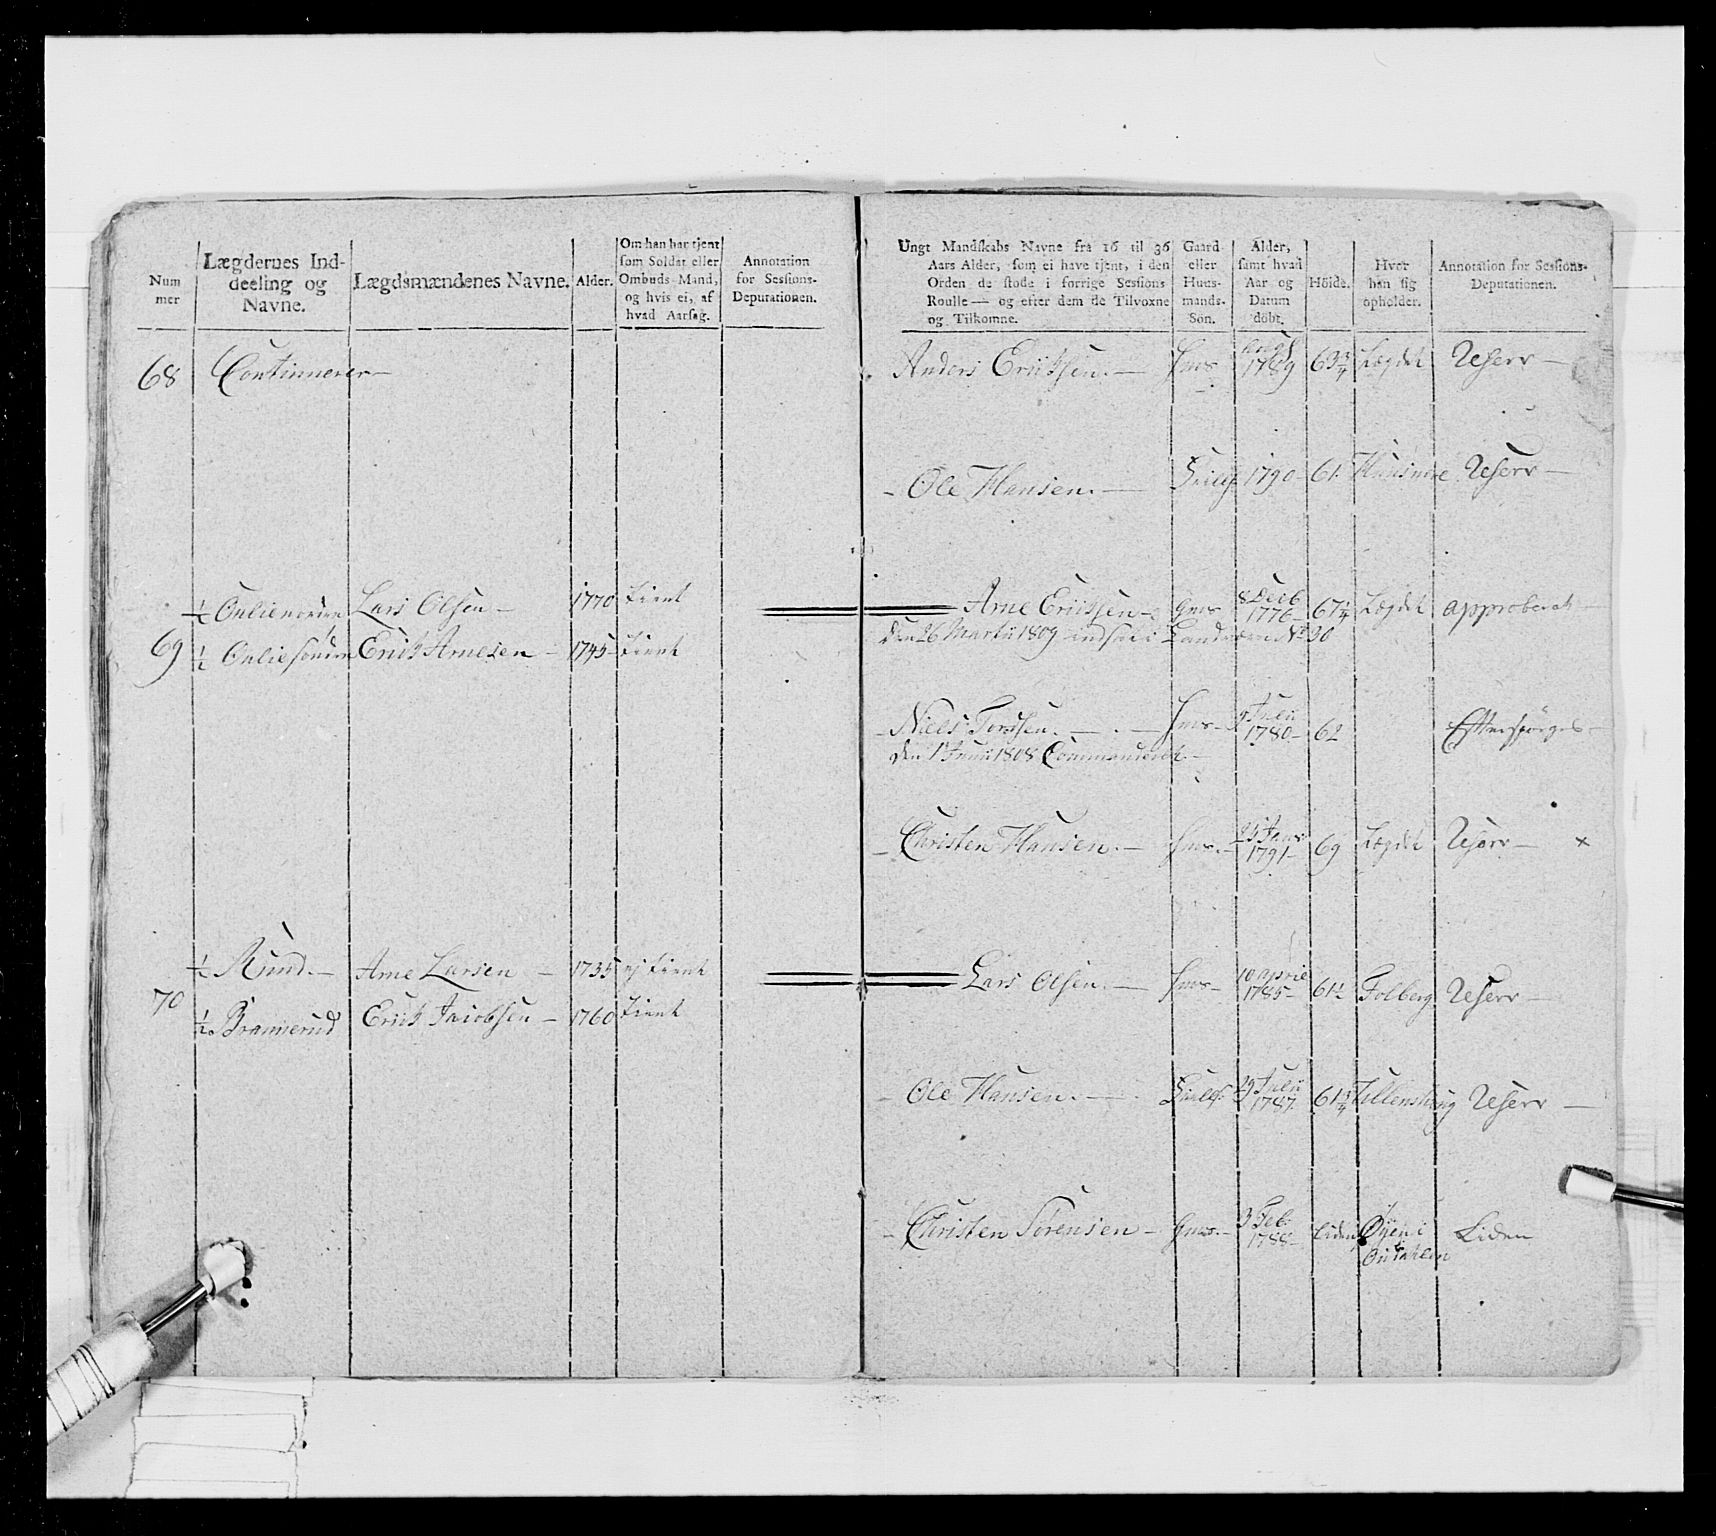 Num
mer
Lægdernes Ind-
deeling og
Navne.
Lægdsmændenes Navne.
Alder.
Om han har tjent
som Soldat eller
Ombuds-Mand,
og hvis ei, af
hvad Aarsag.
Annotation
for Sessions-
Deputationen.
Ungt Mandskabs Navne fra 16 til 36
Aars Alder, som ei have tjent, i den
Orden de stode i forrige Sessions
Roulle — og efter dem de Tilvoxne
og Tilkomne.
Gaard-
eller
Huus-
mands-
Søn.
Alder,
samt hvad
Aar og
Datum
döbt.
Höide.
Hvor
han sig
opholder.
Annotation for Sessions-
Deputationen.
68 Continuerer—
Anders Ericksen.— 1789 63 3/4 Lægdet Reserv—
- Ole Hansen.— 1790- 61. Reserv—
1/2 Onlienordre Lars Olsen— 1770 tient
Arne Ericksen— gms 8 Feb 1776- 67 1/4 Lægdet approberet—
Den 26 Martii 1809 indsat i Landværn No 30
69 1/2 Onliesøndre Erick Arnesen— 1745- tient
- Niels Torsten.— hms- Julii 1780- 62 Efterspörges—
den 1 Junii 1808 Commanderet.—
- Christen Hansen.— hms.- 25 Janv 1791- 69 Lægdet Reserv— x
1/2 Rund.— Arne Larsen— 1735 ej tient
Lars Olsen.— hms- 10 april 1785- 61 1/2 Folberg Reserv—
70 1/2 Bramerud Erick Jacobsen— 1760 tient
- Ole Hansen.— 29 Julii 1787. 61 3/4 Reserv—
- Christen Sørensen— gms.- 3 Feb. 1788- liden Øyen i Liden